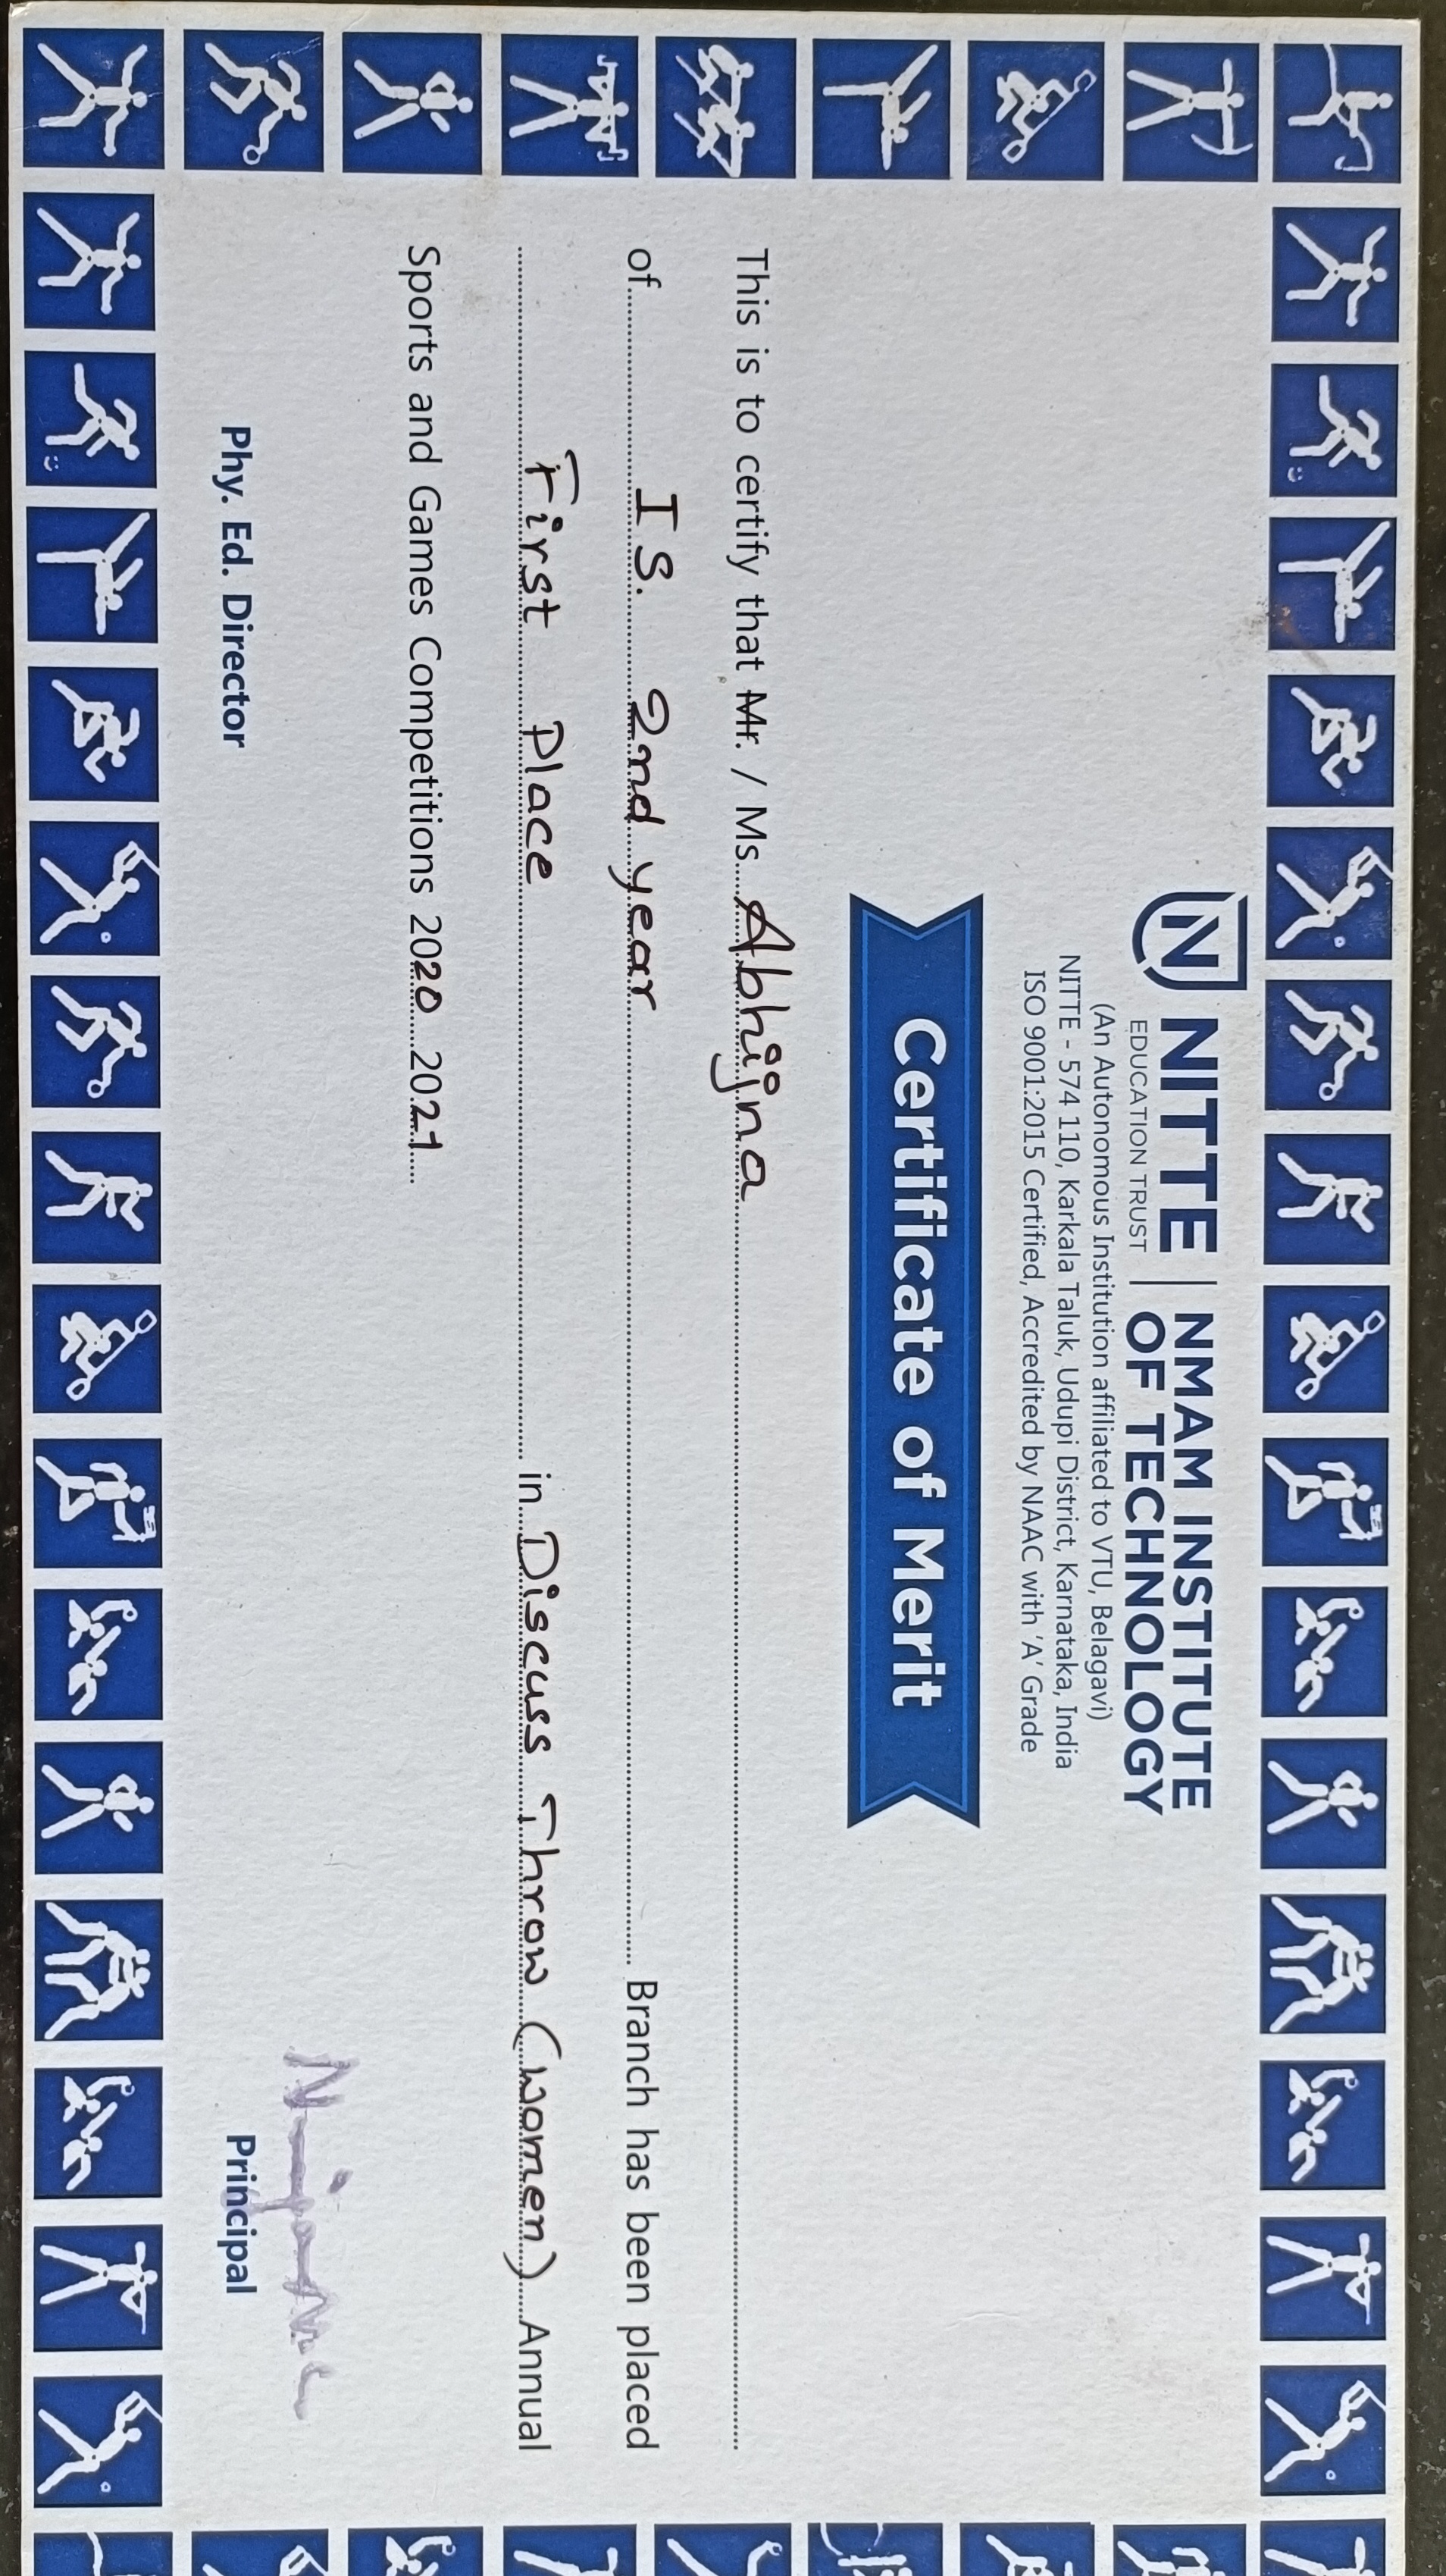 NITTE
EDUCATION TRUST
NMAM INSTITUTE
OF TECHNOLOGY
(An Autonomous Institution affiliated to VTU, Belagavi)
NITTE - 574 110, Karkala Taluk, Udupi District, Karnataka, India
ISO 9001:2015 Certified, Accredited by NAAC with 'A' Grade
Certificate of Merit
This is to certify that Mr. / Ms. Abhijna
of I S. 2nd year Branch has been placed
First Place in Discuss Throw (women) Annual
Sports and Games Competitions 2020 2021
Phy. Ed. Director
Principal